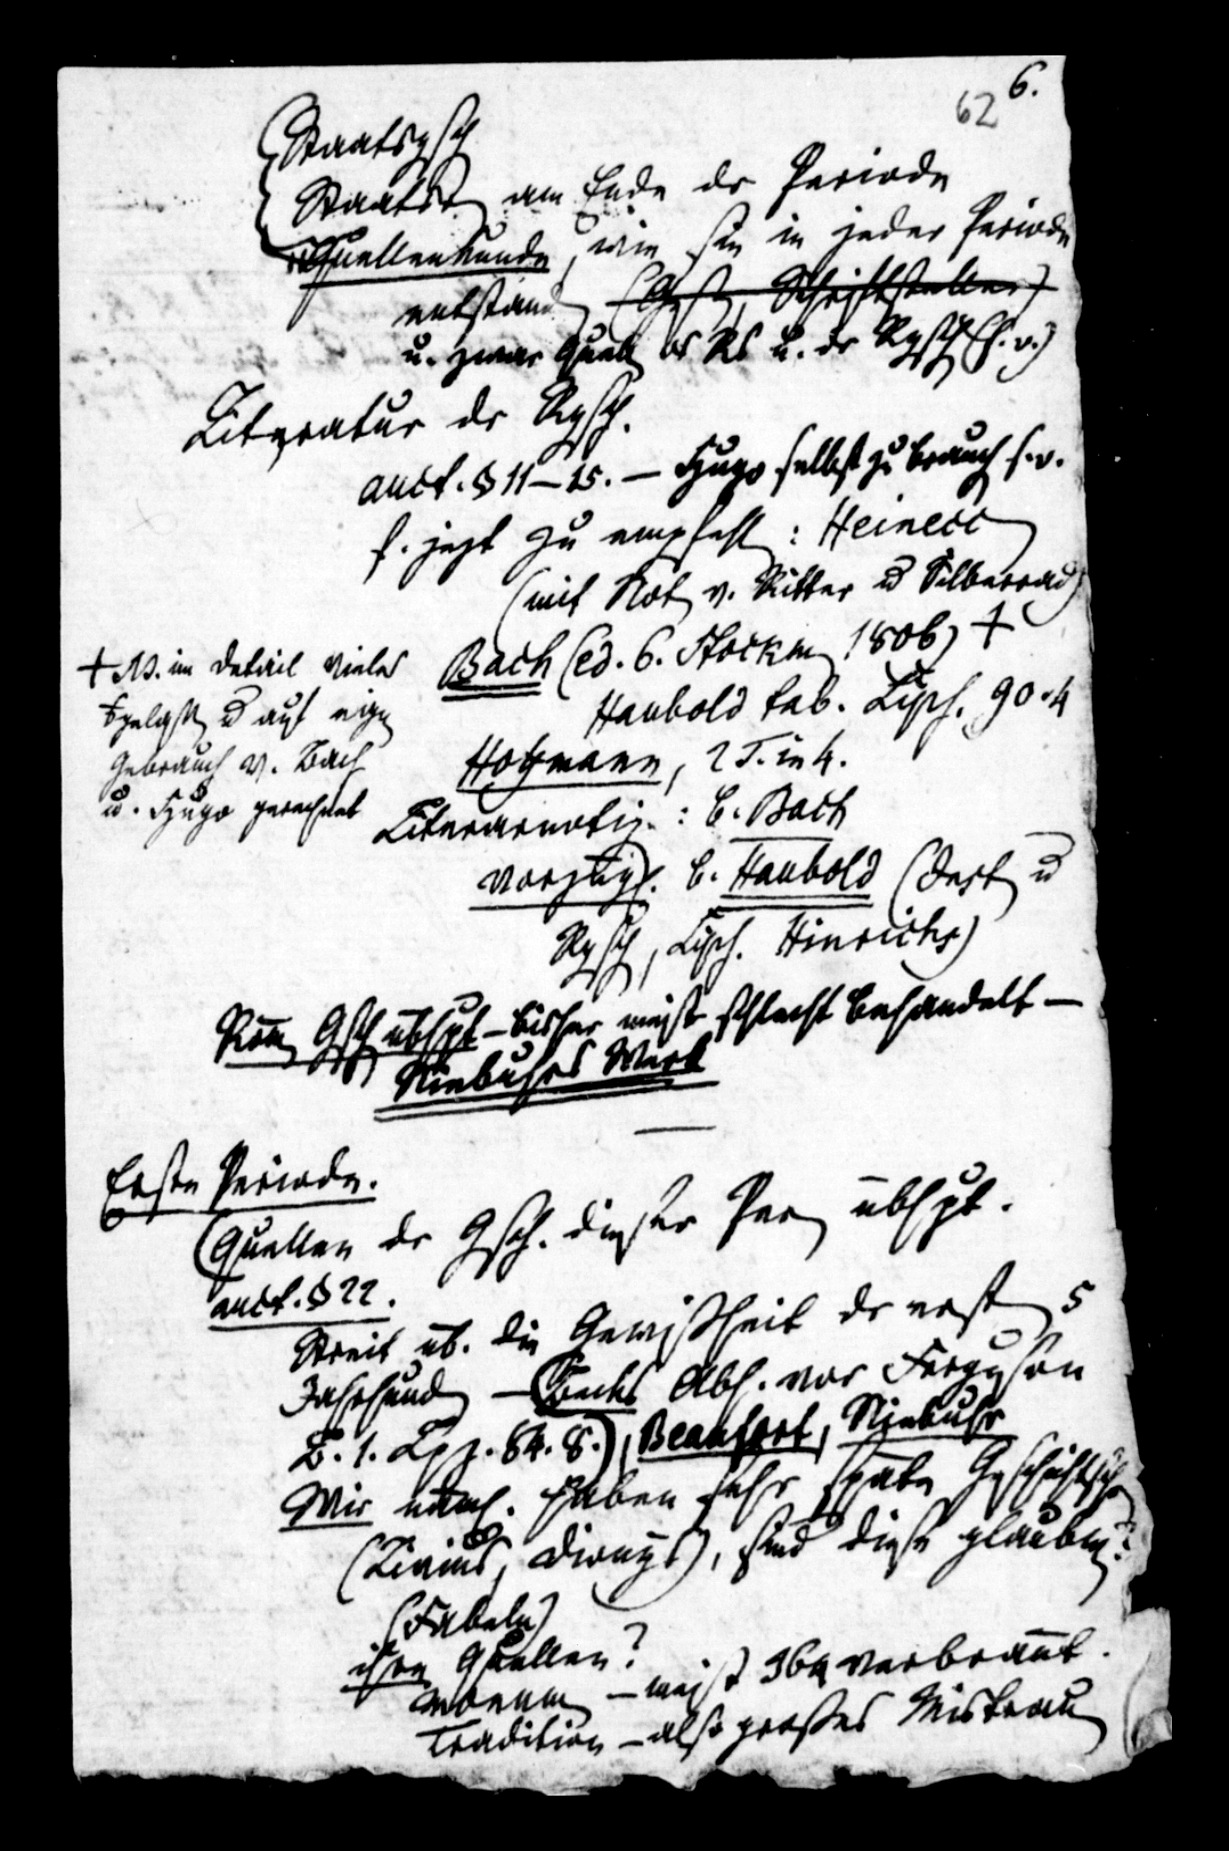 6.
62
Staatsgsch
Staatsr am Ende dr Periode
Quellenkunde, wie sie in jeder Periode
entstand (Gesetz, Schriftsteller)
u. zwar Quell ds Rs u. dr Rgsch (s. v.)
Literatur dr Rgsch.
auct. § 11–15. – Hugo selbst zu brauch s. v.
f. jezt zu empfehl: Heinecc
(mit Not v. Ritter u Silberrad)
Bach (ed. 6. Stockm 1806) +
Haubold tab. Lips. 90. 4
Hofmann, 2 T. in 4.
Literarnotiz.: b. Bach
vorzügl. b. Haubold (Inst u
Rgsch, Lips. Hinrichs)
+ NB. im Detail vieles
u auf eign
Gebrauch v. Bach
u. Hugo gerechnet
Röm Gsch übhpt – bisher meist schlecht behandelt –
Niebuhrs Werk
Erste Periode.
Quellen dr Gsch. dieser Per übhpt.
auct. § 22.
Streit üb. die Gewißheit dr erst 5
Jahrhund – (Becks Abh. vor Ferguson
B. 1. Lpz. 84. 8.), Beaufort, Niebuhr
Wir näml. haben sehr späte Geschichtsch
(Livius, Dionys), sind diese glaubw?
(Fabeln)
ihre Quellen?
monum – meist 364 verbrannt.
Tradition – also großes Mistrau